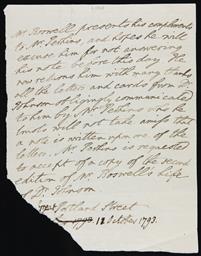 Mr. Boswell presents his compliments
to Mr. Perkins, and hopes he will
excuse him for not answering
his note before this day. He
now returns him with many thanks
all the letters and cards from Dr.
Johnson obligingly communicated
to him by Mr. Perkins who he
trusts will not take amiss that
a note is written upon one of the
letters. Mr. Perkins is requested
to accept of a copy of the second
edition of Mr. Boswell's Life
of Dr. Johnson.
Great Portland Street
12 October 1793.